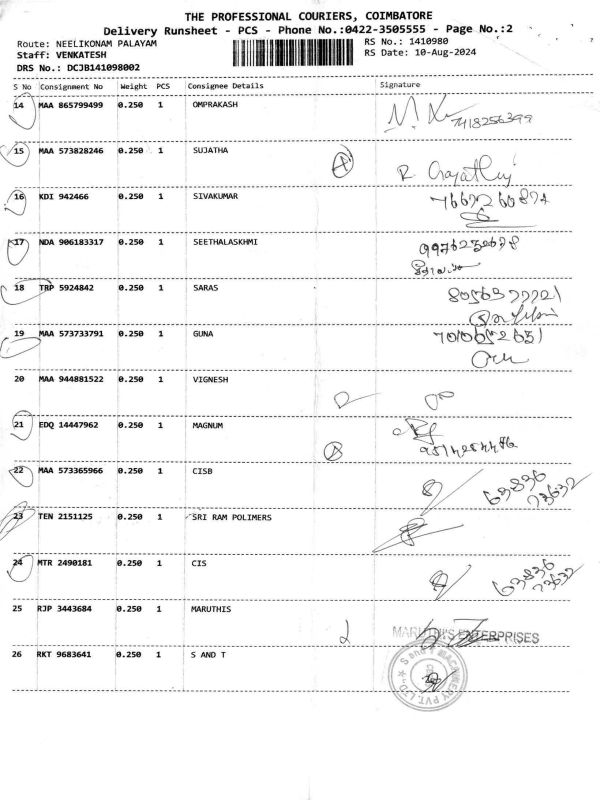 THE PROFESSIONAL COURIERS, COIMBATORE
Delivery Runsheet - PCS - Phone No.:0422-3505555 - Page No.:2
Route: NEELIKONAM PALAYAM
RS No.: 1410980
Staff: VENKATESH
RS Date: 10-Aug-2024
DRS No.: DCJB141098002
S No Consignment No Weight PCS Consignee Details Signature
14 MAA 865799499 0.250 1 OMPRAKASH
7418256399
15 MAA 573828246 0.250 1 SUJATHA A
R Gayathri
16 KDI 942466 0.250 1 SIVAKUMAR
17 NDA 906183317 0.250 1 SEETHALASKHMI
18 TRP 5924842 0.250 1 SARAS
19 MAA 573733791 0.250 1 GUNA
20 MAA 944881522 0.250 1 VIGNESH
21 EDQ 14447962 0.250 1 MAGNUM A
22 MAA 573365966 0.250 1 CISB
63836
73632
23 TEN 2151125 0.250 1 SRI RAM POLIMERS
24 MTR 2490181 0.250 1 CIS
63836
73632
25 RJP 3443684 0.250 1 MARUTHIS
MARUTHI'S ENTERPRISES
26 RKT 9683641 0.250 1 S AND T
S and T MACHINERY PVT. LTD.